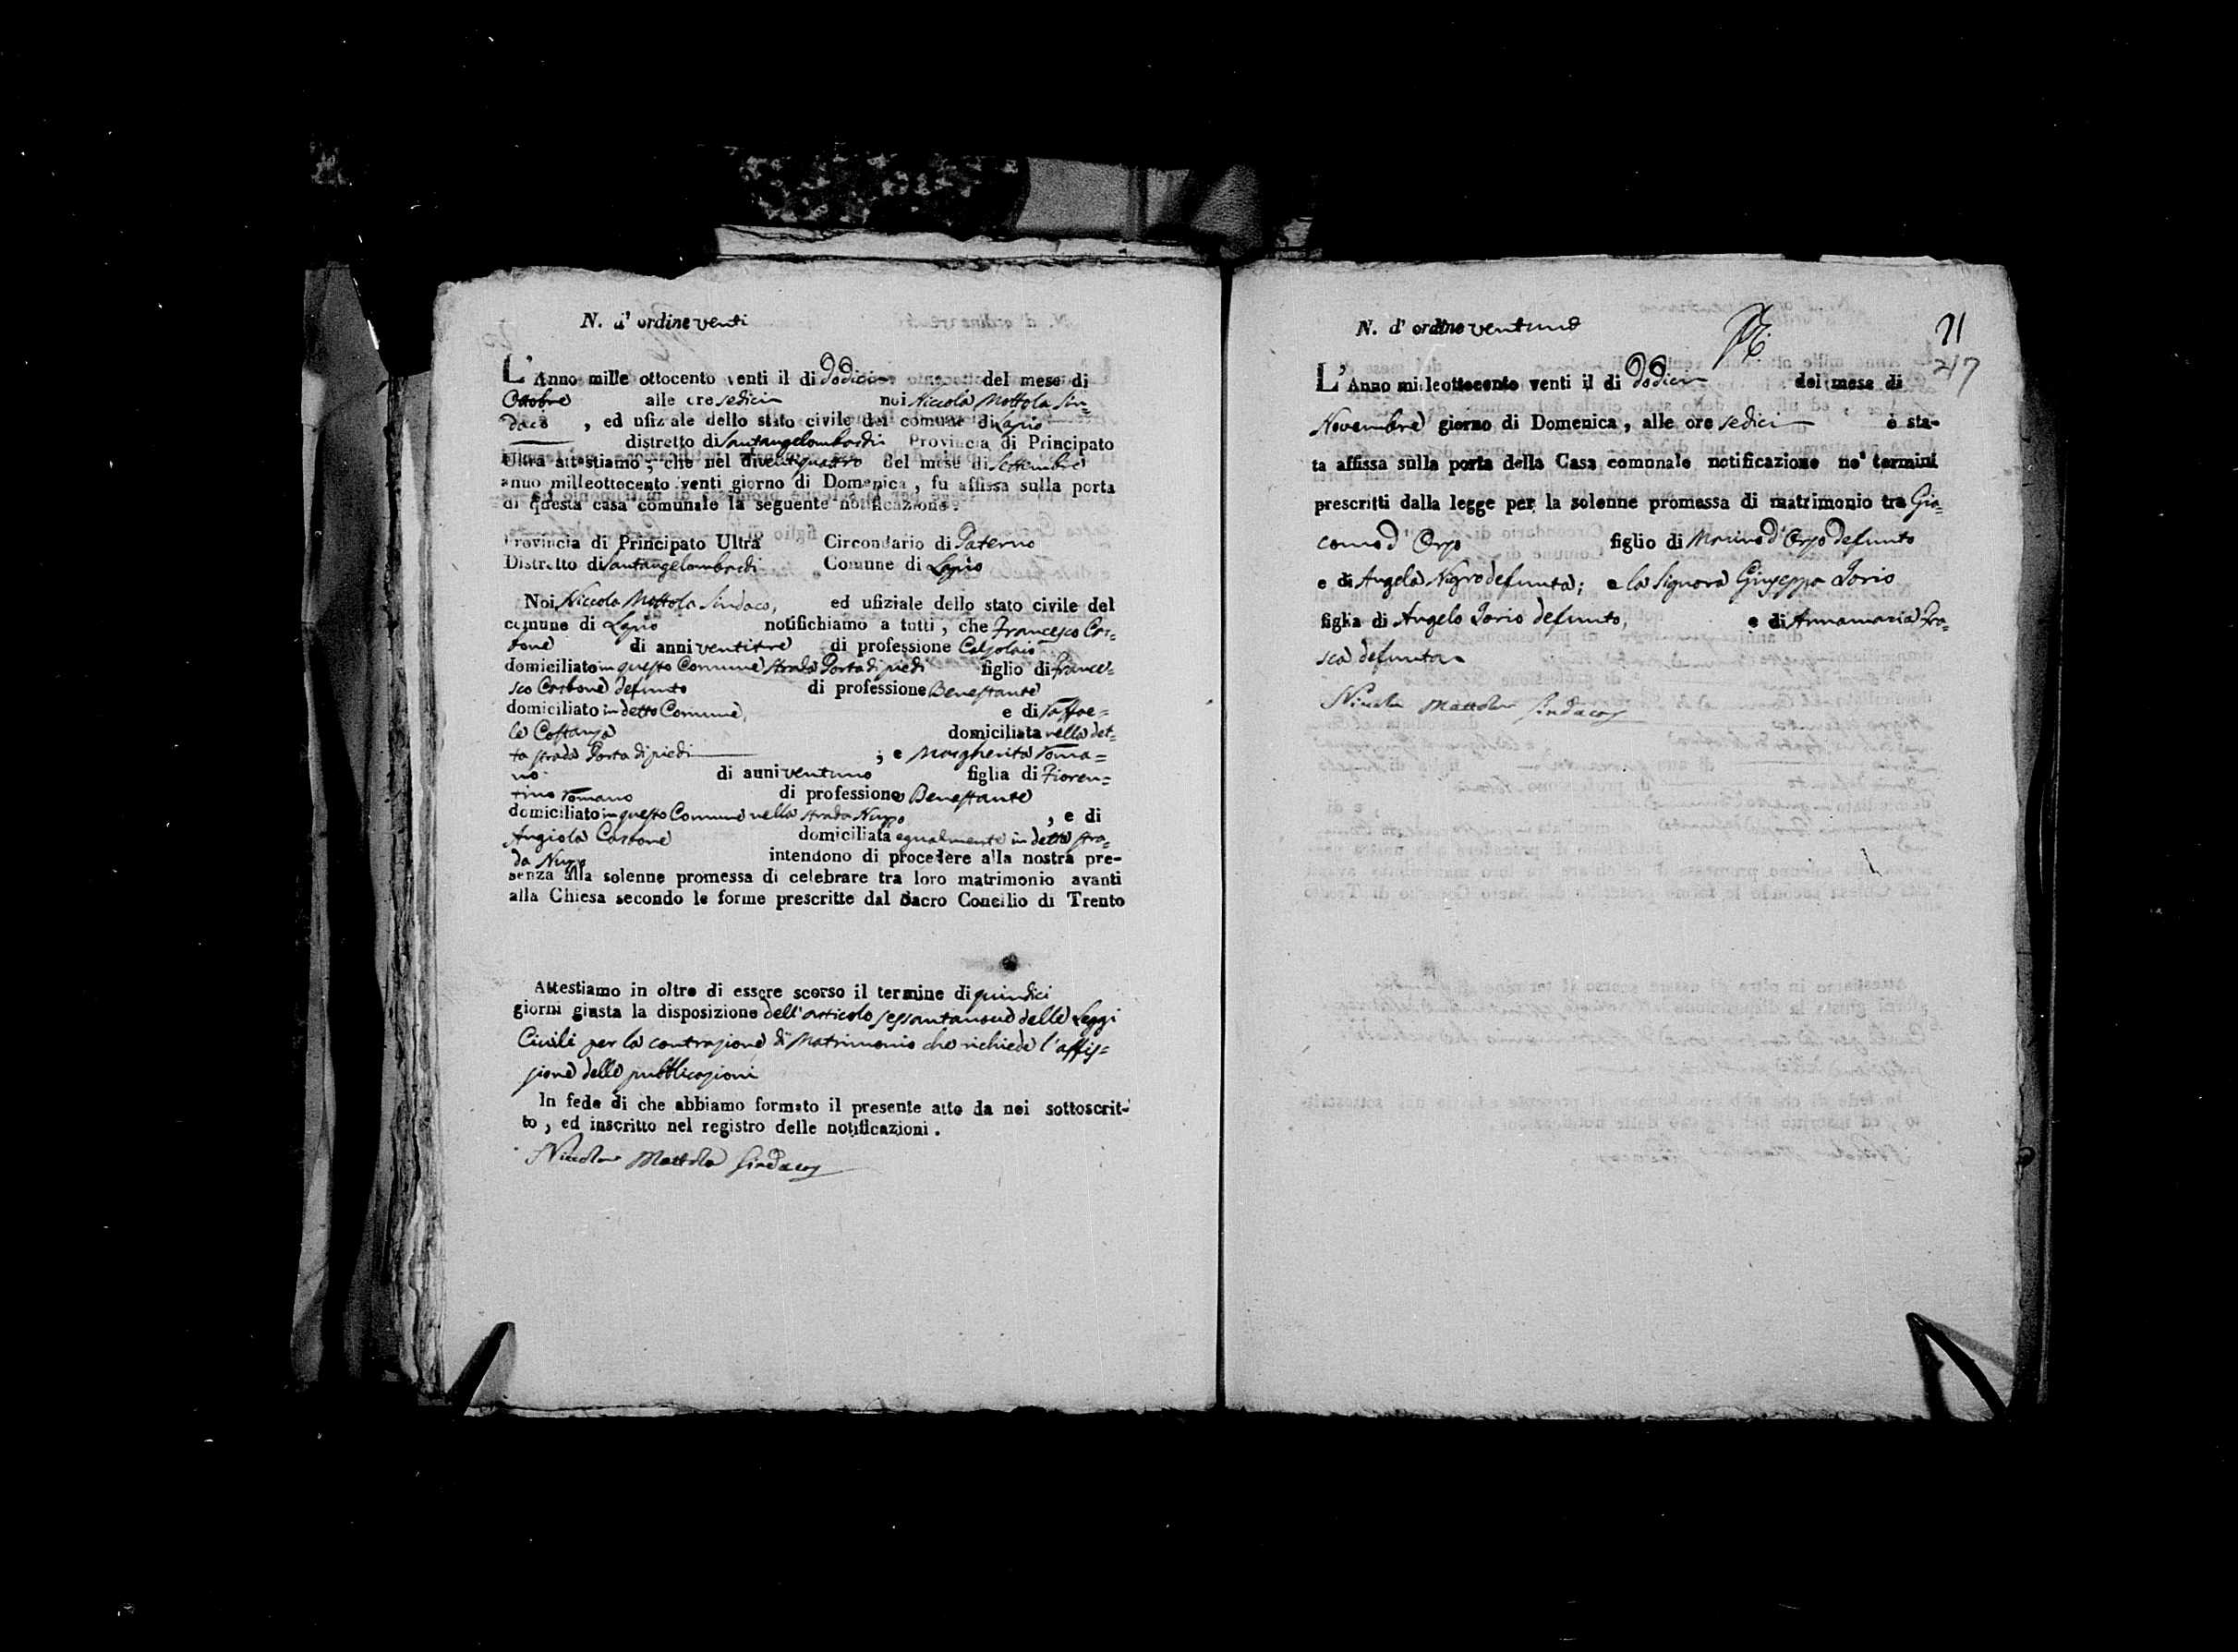 N. d' ordine venti
L'Anno mille ottocento venti il di dodici del mese di
Ottobre alle ore sedici noi Niccola Mottola Sin=
daco , ed ufiziale dello stato civile del comune di Lapio
distretto di Santangelombardi Provincia di Principato
Ultra attestiamo , che nel di ventiquattro del mese di Settembre
anno milleottocento venti giorno di Domenica , fu affissa sulla porta
di questa casa comunale la seguente notificazione .
Provincia di Principato Ultra Circondario di Paterno
Distretto di Santangelombardi Comune di Lapio
Noi Niccola Mottola Sindaco, ed ufiziale dello stato civile del
comune di Lapio notifichiamo a tutti , che Francesco Car=
bone di anni ventitre di professione Calzolaio
domiciliato in questo Comune strada Porta di piedi figlio di France=
sco Carbone defunto di professione Benestante
domiciliato in detto Comune, e di Raffae=
la Costanza domiciliata nella det=
ta strada Porta di piedi ; e Margherita Roma=
no di anni ventuno figlia di Fioren=
tino Romano di professione Benestante
domiciliato in questo Comune nella strada Nuzzo , e di
Angiola Carbone domiciliata egualmente in detta stra=
da Nuzzo intendono di procedere alla nostra pre-
senza alla solenne promessa di celebrare tra loro matrimonio avanti
alla Chiesa secondo le forme prescritte dal Sacro Concilio di Trento
Attestiamo in oltre di essere scorso il termine di quindici
giorni giusta la disposizione dell'articolo sessantanove delle Leggi
Civili per la contrazione di Matrimonio che richiede l'affis=
sione delle pubblicazioni
In fede di che abbiamo formato il presente atto da noi sottoscrit-
to , ed inscritto nel registro delle notificazioni .
Nicola Mottola Sindaco
N. d' ordine ventuno
21
217
L'Anno milleottocento venti il di dodici del mese di
Novembre giorno di Domenica , alle ore sedici è sta-
ta affissa sulla porta della Casa comunale notificazione ne' termini
prescritti dalla legge per la solenne promessa di matrimonio tra Gia=
como d' Orzo figlio di Marino d' Orzo defunto
e di Angela Nigro defunta ; e la Signora Giuseppa Iorio
figlia di Angelo Iorio defunto, e di Annamaria Fra=
sca defunta
Nicola Mottola Sindaco